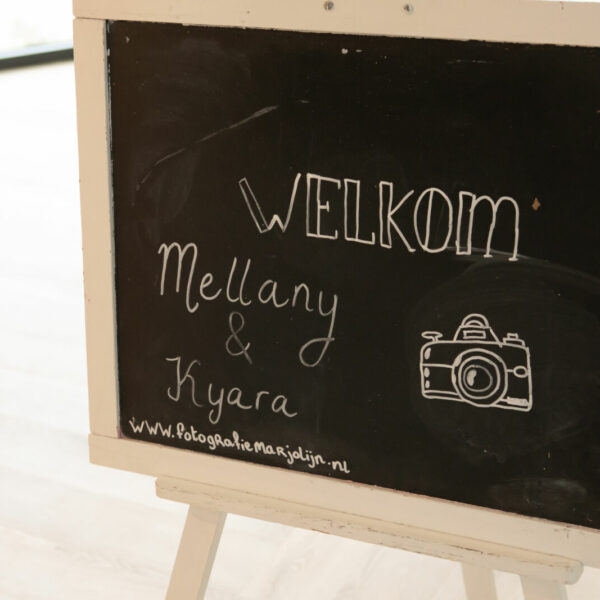 WELKOM
Mellany
&
Kyara
www.fotografiemarjolijn.nl